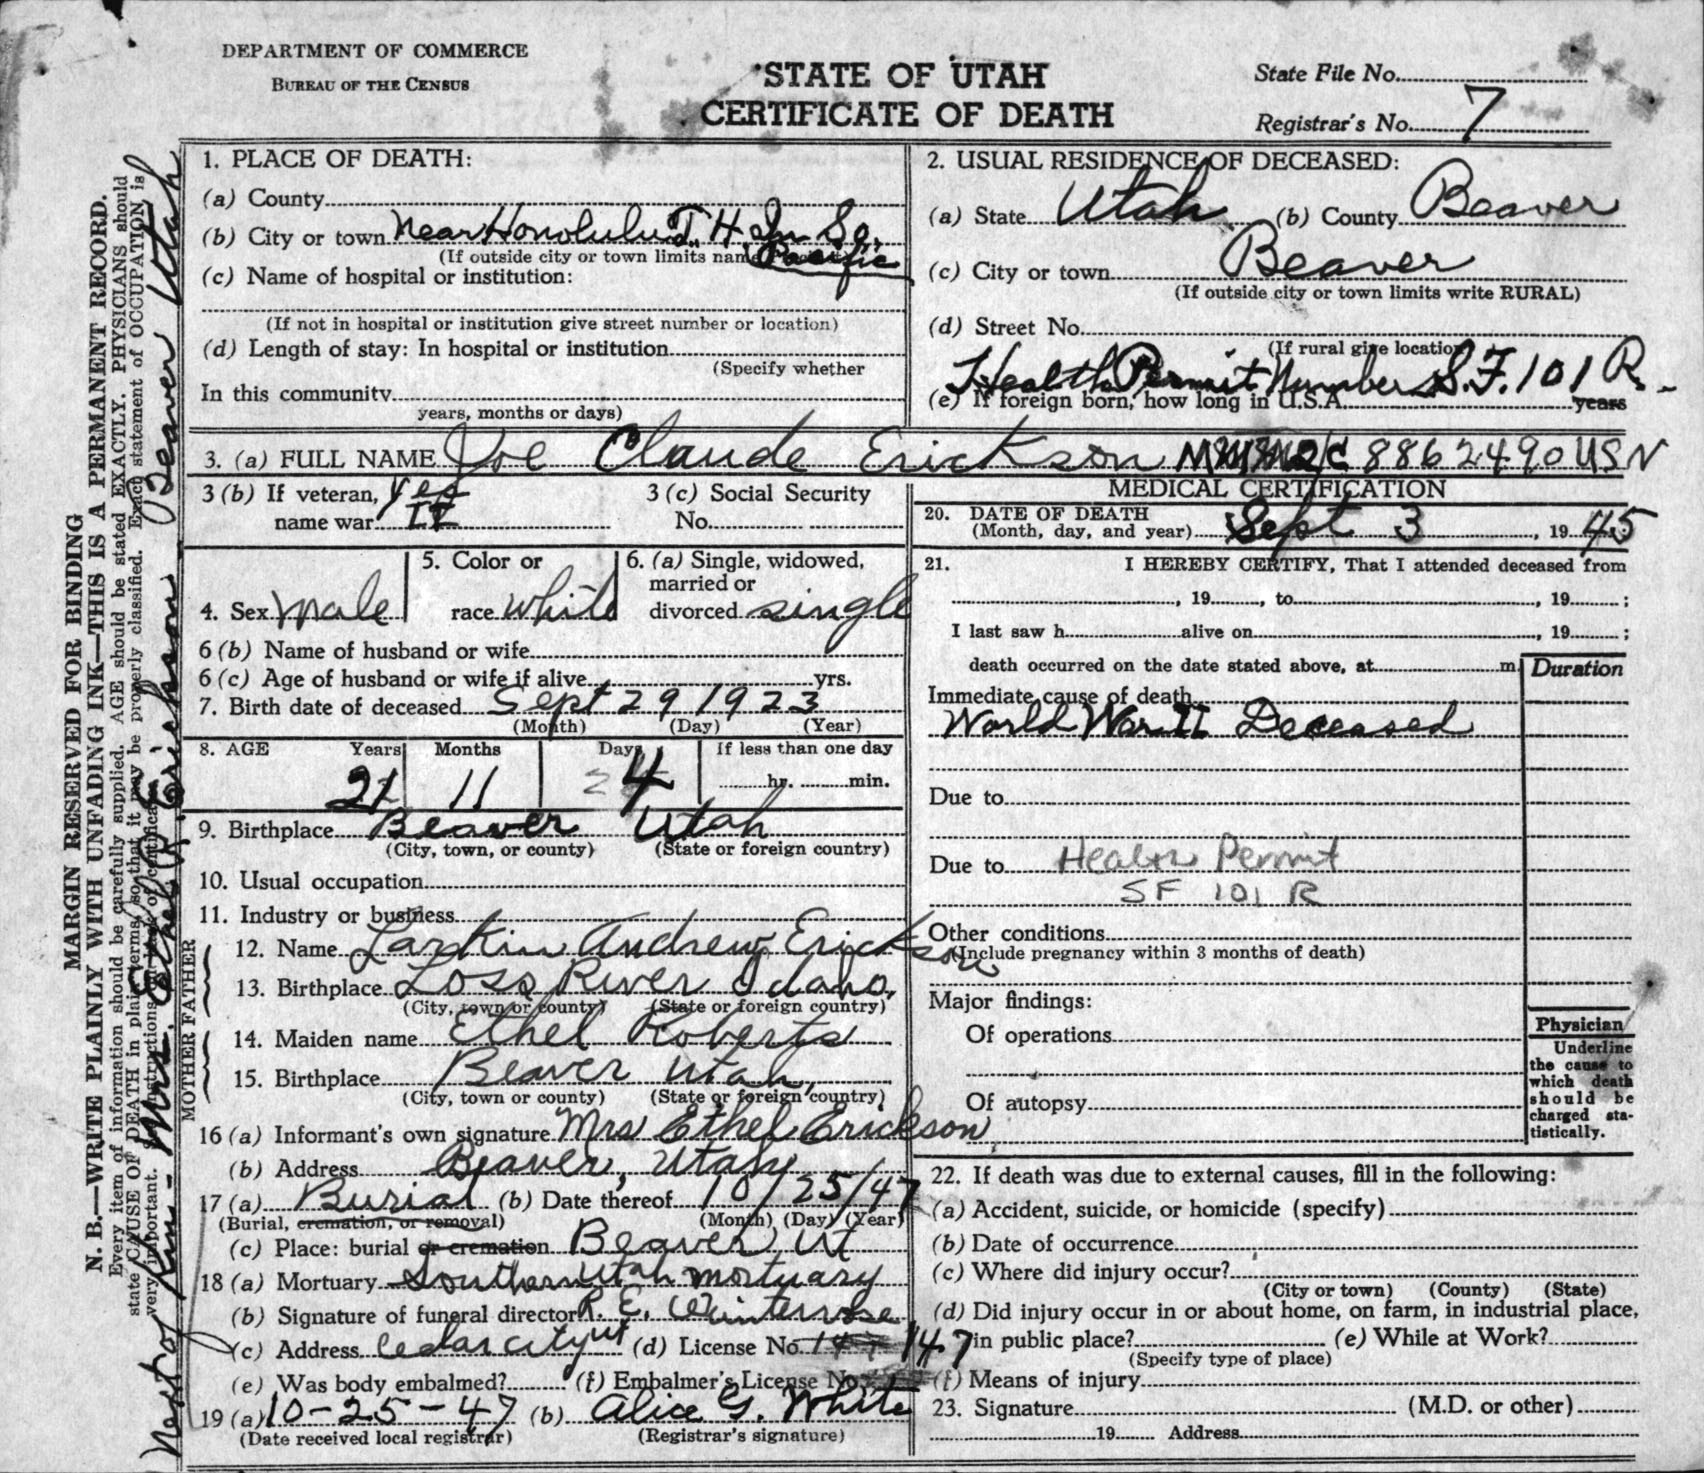 DEPARTMENT OF COMMERCE
BUREAU OF THE CENSUS
STATE OF UTAH
CERTIFICATE OF DEATH
State File No.
Registrar's No. 7
MARGIN RESERVED FOR BINDING
N. B.—WRITE PLAINLY WITH UNFADING INK—THIS IS A PERMANENT RECORD.
Every item of information should be carefully supplied. AGE should be stated EXACTLY. PHYSICIANS should
state CAUSE OF DEATH in plain terms, so that it may be properly classified. Exact statement of OCCUPATION is
very important. See instructions on back of certificate.
Next of Kin - Mrs. Ethel R. Erickson Beaver Utah
1. PLACE OF DEATH:
(a) County
(b) City or town Near Honolulu T. H. In So. Pacific
(If outside city or town limits name
(c) Name of hospital or institution:
(If not in hospital or institution give street number or location)
(d) Length of stay: In hospital or institution
(Specify whether
In this community
years, months or days)
2. USUAL RESIDENCE OF DECEASED:
(a) State Utah (b) County Beaver
(c) City or town Beaver
(If outside city or town limits write RURAL)
(d) Street No.
(If rural give location)
Health Permit Number S.F. 101 R.
(e) If foreign born, how long in U.S.A. years
3. (a) FULL NAME Joe Claude Erickson 8862490 USN
3 (b) If veteran, name war Yes II
3 (c) Social Security No.
4. Sex Male
5. Color or race white
6. (a) Single, widowed, married or divorced single
6 (b) Name of husband or wife
6 (c) Age of husband or wife if alive yrs.
7. Birth date of deceased Sept 29 1923
(Month) (Day) (Year)
8. AGE Years Months Days If less than one day
21 11 4 hr. min.
9. Birthplace Beaver Utah
(City, town, or county) (State or foreign country)
10. Usual occupation
11. Industry or business
FATHER
12. Name Larkin Andrew Erickson
13. Birthplace Loss River Idaho.
(City, town or county) (State or foreign country)
MOTHER
14. Maiden name Ethel Roberts
15. Birthplace Beaver Utah,
(City, town or county) (State or foreign country)
16 (a) Informant's own signature Mrs Ethel Erickson
(b) Address Beaver, Utah
17 (a) Burial (b) Date thereof 10/25/47
(Burial, cremation, or removal) (Month) (Day) (Year)
(c) Place: burial or cremation Beaver, Ut
18 (a) Mortuary Southern Utah mortuary
(b) Signature of funeral director R. E. Winterrose
(c) Address Cedar City ut (d) License No. 147 147
(e) Was body embalmed? (f) Embalmer's License No.
19 (a) 10-25-47 (b) Alice G. White
(Date received local registrar) (Registrar's signature)
MEDICAL CERTIFICATION
20. DATE OF DEATH
(Month, day, and year) Sept 3, 1945
21. I HEREBY CERTIFY, That I attended deceased from
, 19 , to , 19 ;
I last saw h alive on , 19 ;
death occurred on the date stated above, at m.
Duration
Immediate cause of death
World War II Deceased
Due to
Due to Health Permit
SF 101 R
Other conditions
(Include pregnancy within 3 months of death)
Major findings:
Of operations
Of autopsy
Physician
Underline
the cause to
which death
should be
charged sta-
tistically.
22. If death was due to external causes, fill in the following:
(a) Accident, suicide, or homicide (specify)
(b) Date of occurrence
(c) Where did injury occur?
(City or town) (County) (State)
(d) Did injury occur in or about home, on farm, in industrial place,
in public place? (e) While at Work?
(Specify type of place)
(f) Means of injury
23. Signature (M.D. or other)
19 Address